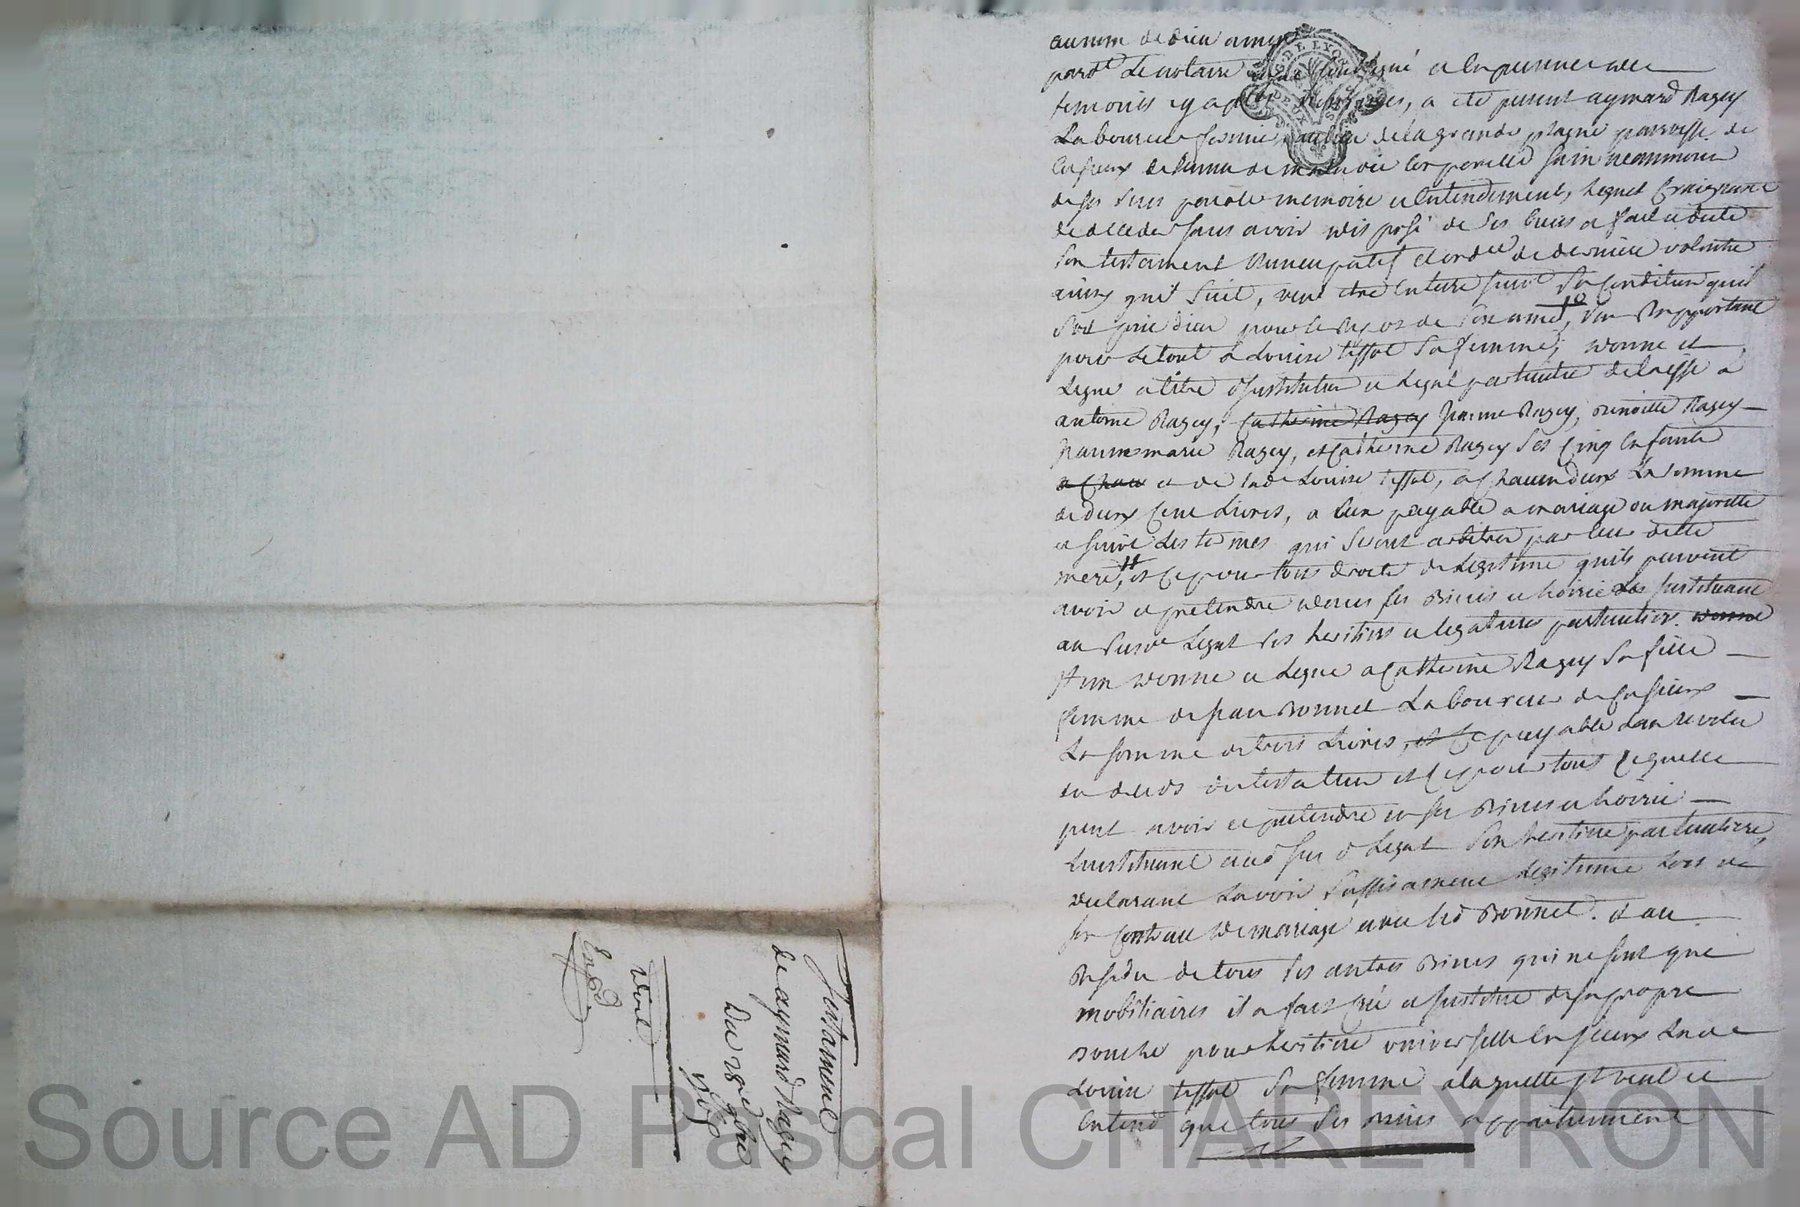 au nom de dieu amen
pard.t Le notaire soussigné et En presence des
temoins cy apres nommes, a eté present aymard Ragey
Laboureur fermier au lieu de la grande plagne parroisse de
de maladie Corporelle sain neammoin
de ses sens parolle memoire et Entendement, Lequel Craignant
de deceder sans avoir disposé de ses biens a fait et dicté
son testament Nuncupatif et ord.ce de derniere volonté
ainsy que suit, veut etre Enterré suiv.t sa Condition quil
soit prié dieu pour le Repos de son ame, s'en Rapportant
pour le tout a Louise tissot sa femme; donne et
Legue a titre d'Institution et Legat particulier delaisse a
antoine Ragey, Catherine Ragey Jeanne Ragey, Ragey
Jeanne marie Ragey, et Catherine Ragey ses Cinq Enfants
a Chacu et de lad.e Louise tissot, a Chacun deux La somme
de deux Cent Livres, a Eux payable a mariage ou majorité
et suiv.t Les termes qui seront arbitres par leur ditte
mere, et Ce pour tous droits de Legitime quils peuvent
avoir et pretendre dans ses biens et hoirie Les Instituant
au susd.t Legat ses heritiers et legataires particuliers. donne
Item donne et Legue a Catherine Ragey sa fille
femme de Jean Bonnet Laboureur de
La somme de trois Livres, et Ce payable dan revolu
du deces du testateur et Ce pour tout Ce quelle
peut avoir et pretendre en ses biens et hoirie
Linstituant aud. sus d. Legat son heritiere particuliere,
declarant Lavoir suffisament Legitimé Lors de
son Contract de mariage avec led Bonnet. et au
Residu de tous ses autres biens qui ne sont que
mobiliaires il a fait Créé et Institué de sa propre
bouche pour heritiere universelle lad.e
Louise tissot sa femme a laquelle Il veut et
Entend que tous ses biens appartiennent
Testament
de aymard Ragey
Du